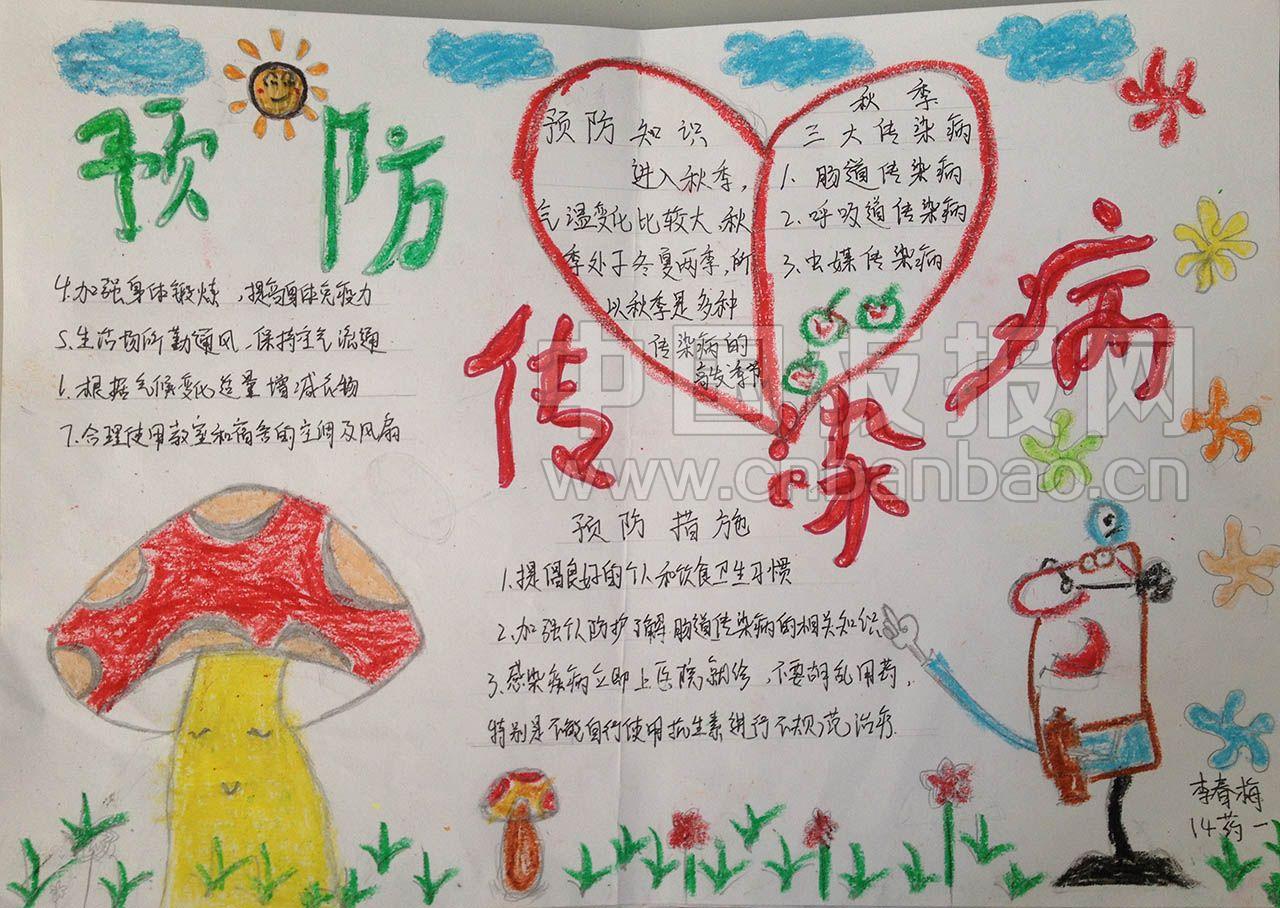 预防
传染病
预防知识
进入秋季，
气温变化比较大，秋
季处于冬夏两季，所
以秋季是多种
传染病的
高发季节
秋季
三大传染病
1. 肠道传染病
2. 呼吸道传染病
3. 虫媒传染病
预防措施
1.提倡良好的个人和饮食卫生习惯
2.加强个人防护了解肠道传染病的相关知识
3.感染疾病立即上医院就诊，不要胡乱用药，
特别是不能自行使用抗生素进行不规范治疗.
4.加强身体锻炼，提高身体免疫力
5.生活场所勤通风，保持空气流通
6.根据气候变化适量增减衣物
7.合理使用教室和宿舍的空调及风扇
李春梅
14药一
中国板报网
www.cnbanbao.cn